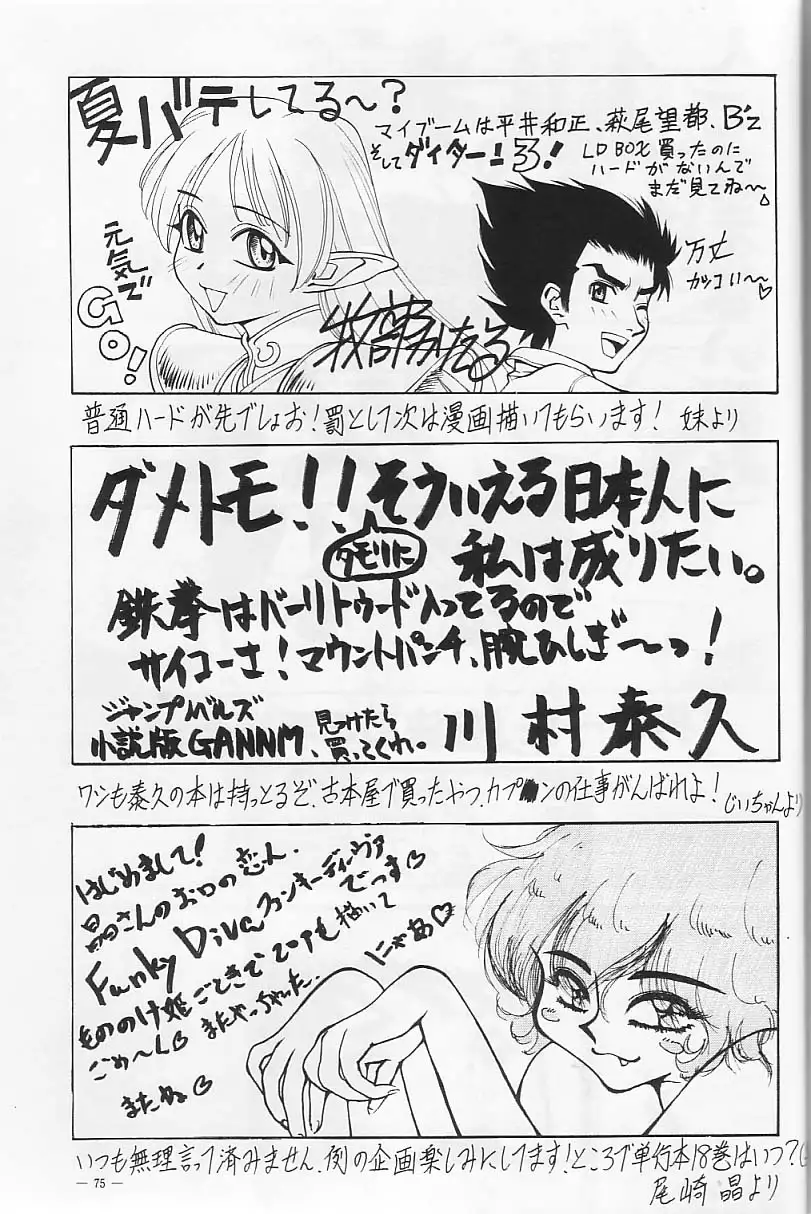 夏バテしてる〜？
マイブームは平井和正、萩尾望都、B'z
そしてダイターン3!
LD BOX 買ったのに
ハードがないんで
まだ見てね〜
元気で
GO!
万丈
カッコいい〜♡
普通ハードが先でしょお!罰として次は漫画描いてもらいます! 妹より
ダメトモ!!そういえる日本人に
タモリに
私は成りたい。
鉄拳はバーリトゥード入ってるので
サイコーさ!マウントパンチ、腕ひしぎ〜っ!
ジャンプノベルズ
小説版GANNM、見つけたら
買ってくれ。
川村泰久
ワシも泰久の本は持っとるぞ、古本屋で買ったやつ、カプ■ンの仕事がんばれよ! じいちゃんより
はじめまして!
晶さんのお口の恋人、
Funky Diva ファンキーディヴァ
でっす♡
もののけ姫ごときで2回も描いて
にゃあ♡
ごめ〜ん♡ またやっちゃった。
またね♡
いつも無理言って済みません、例の企画楽しみにしてます!ところで単行本18巻はいつ?
尾崎晶より
— 75 —